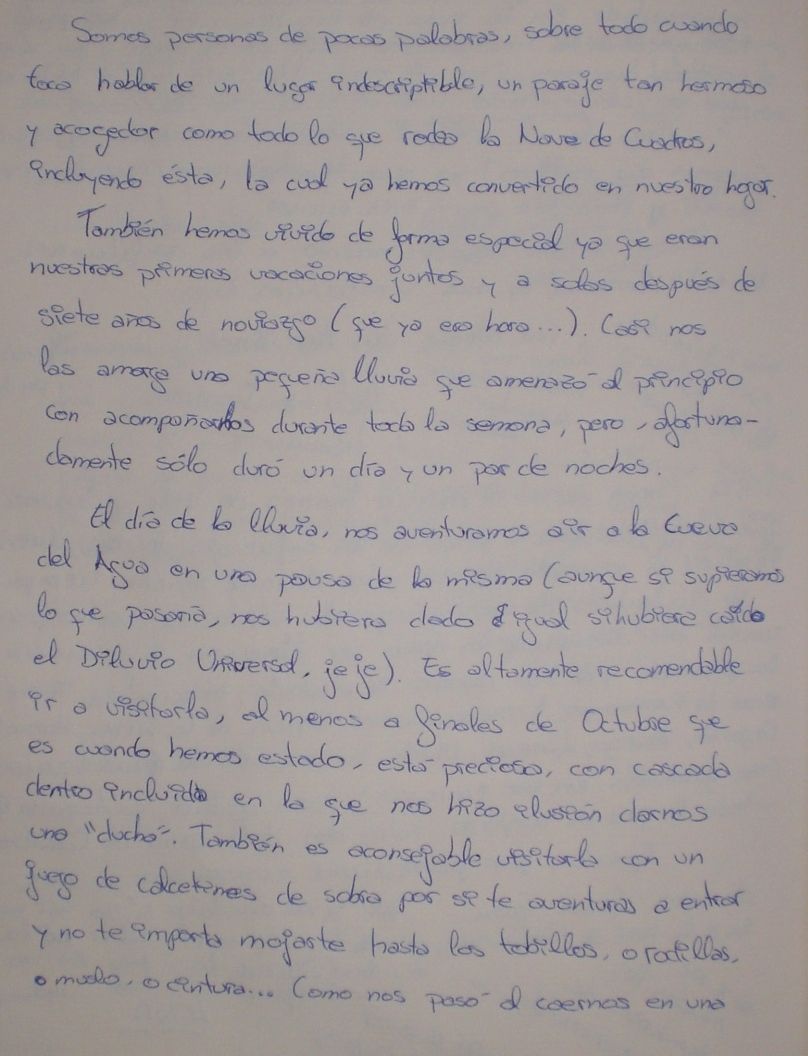 Somos personas de pocas palabras, sobre todo cuando
toca hablar de un lugar indescriptible, un paraje tan hermoso
y acogedor como todo lo que rodea la Nava de Cuadros,
incluyendo ésta, la cual ya hemos convertido en nuestro hogar.
También hemos vivido de forma especial ya que eran
nuestras primeras vacaciones juntos y a solas después de
siete años de noviazgo (que ya era hora...). Casi nos
las amarga una pequeña lluvia que amenazó al principio
con acompañarnos durante toda la semana, pero, afortuna-
damente sólo duró un día y un par de noches.
El día de la lluvia, nos aventuramos a ir a la Cueva
del Agua en una pausa de la misma (aunque si supieramos
lo que pasaría, nos hubiera dado igual si hubiera caído
el Diluvio Universal, jeje). Es altamente recomendable
ir a visitarla, al menos a finales de Octubre que
es cuando hemos estado, está preciosa, con cascada
dentro incluida en la que nos hizo ilusión darnos
una "ducha". También es aconsejable visitarla con un
juego de calcetines de sobra por si te aventuras a entrar
y no te importa mojarte hasta los tobillos, o rodillas,
o muslo, o cintura... Como nos pasó al caernos en una